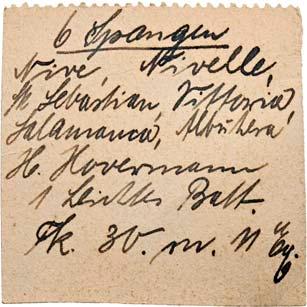 6 Spangen
Nive, Nivelle,
St. Sebastian, Vittoria,
Salamanca, Albuhera
H. Hovermann
1 Leichtes Batt.
Fk. 30. m.